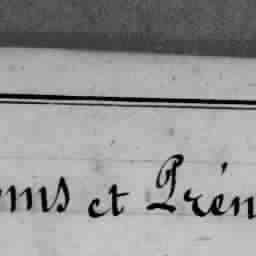 oms et Prén